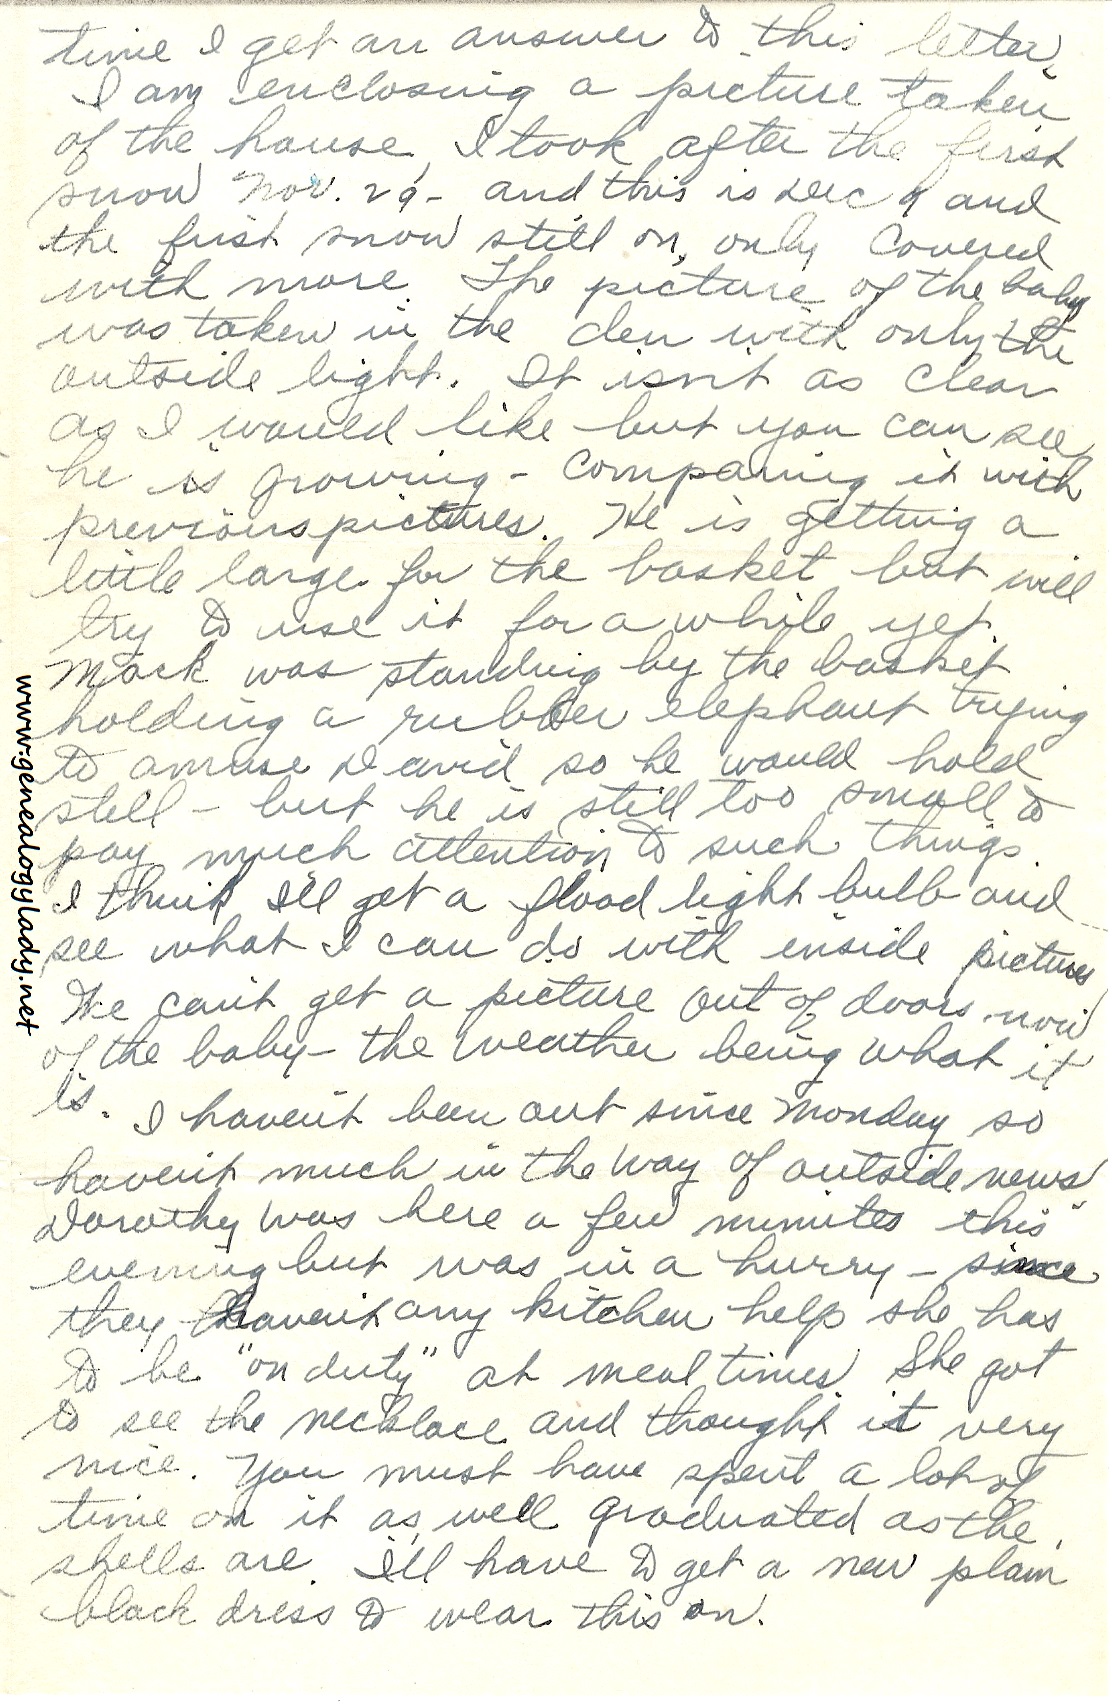 time I get an answer to this letter.
I am enclosing a picture taken
of the house I took after the first
snow Nov. 29 - and this is Dec 9 and
the first snow still on, only covered
with more. The picture of the baby
was taken in the den with only the
outside light. It isn't as clear
as I would like but you can see
he is growing - comparing it with
previous pictures. He is getting a
little large for the basket but will
try to use it for a while yet.
Mack was standing by the basket
holding a rubber elephant trying
to amuse David so he would hold
still - but he is still too small to
pay much attention to such things.
I think I'll get a flood light bulb and
see what I can do with inside pictures
We can't get a picture out of doors now
of the baby - the weather being what it
is.
I haven't been out since Monday so
haven't much in the way of outside news.
Dorothy was here a few minutes this
evening but was in a hurry - since
they haven't any kitchen help she has
to be "on duty" at meal times. She got
to see the necklace and thought it very
nice. You must have spent a lot of
time on it as well graduated as the
shells are. I'll have to get a new plain
black dress to wear this on.
www.genealogylady.net